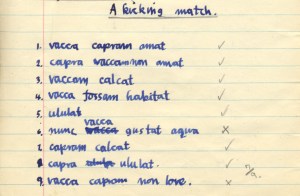 A kicking match.
1. vacca capram amat ✓
2. capra vaccam non amat ✓
3. vaccam calcat ✓
4. vacca fossam habitat ✓
5. ululat ✓
vacca
6. nunc gustat aqua x
7. capram calcat ✓
8. capra ululat. ✓ 7/9.
9. vacca capram non love. x